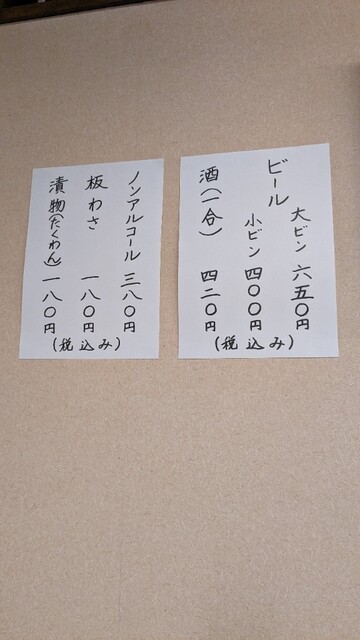 ビール 大ビン 六五〇円
小ビン 四〇〇円
酒(一合) 四二〇円
(税込み)
ノンアルコール 三八〇円
板わさ 一八〇円
漬物(たくわん) 一八〇円
(税込み)